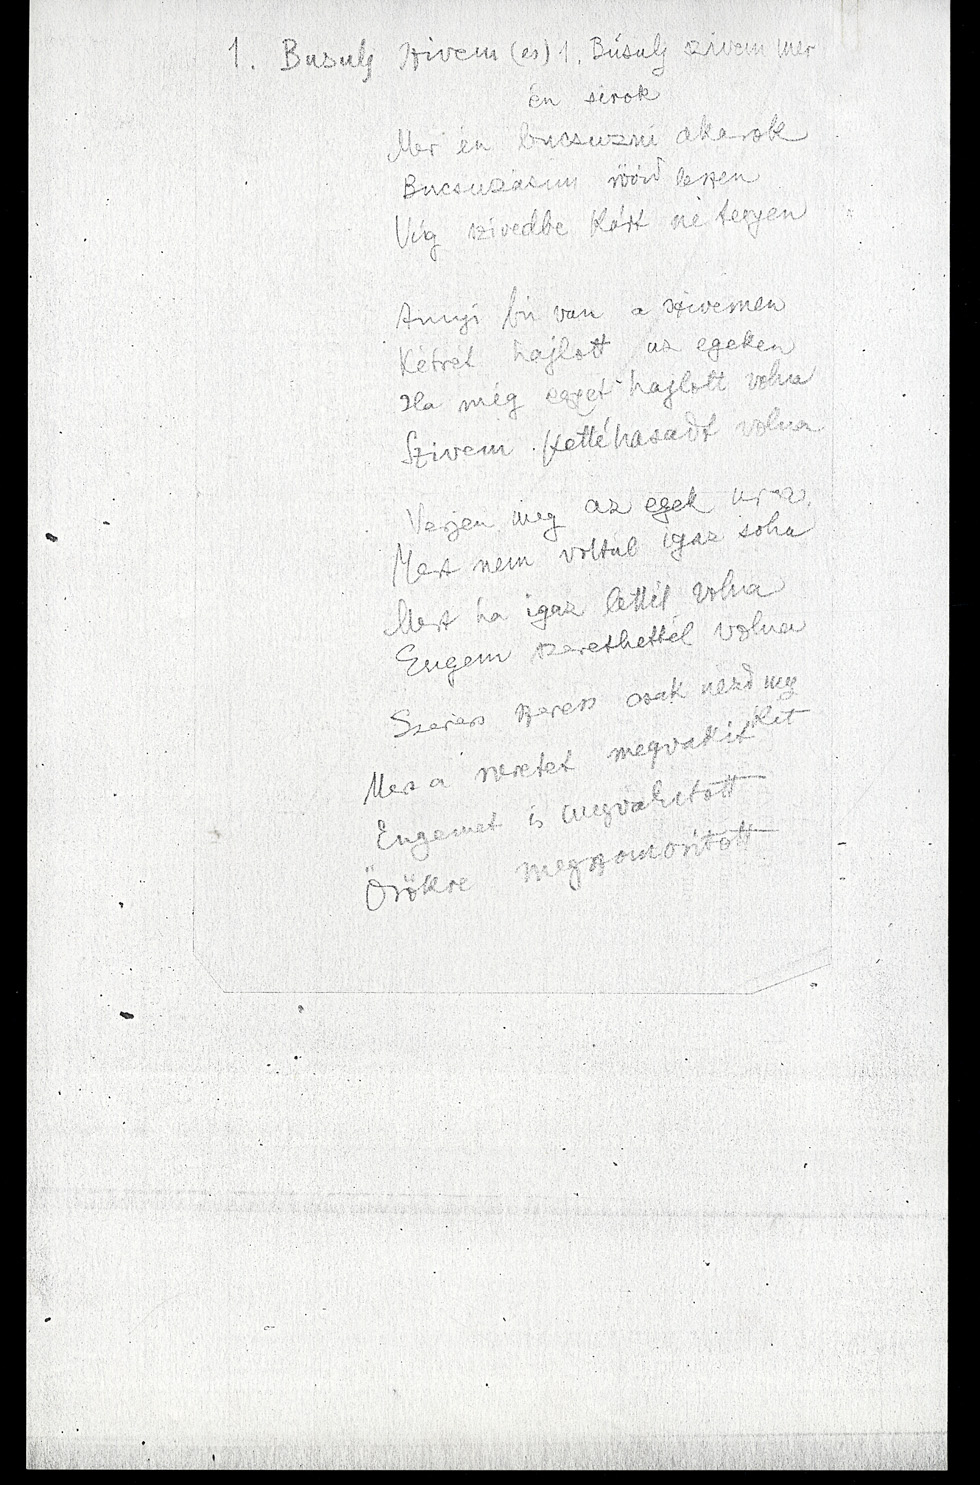 1. Busulj szivem (es) 1. Búsulj szivem mer
én sirok
Mer én bucsuzni akarok
Bucsuzásim rövid leszen
Víg szívedbe kárt ne tegyen
Annyi bú van a szivemen
Kétrét hajlott az egeken
Ha még egyet hajlott volna
Szivem kettéhasadt volna
Verjen meg az egek ura
Mert nem voltál igaz soha
Mert ha igaz lettél volna
Engem szerethettél volna
Szeress szeress csak nezd meg
kit
Mer a szeretet megvakit
Engemet is megvakitott
Örökre megszomorított